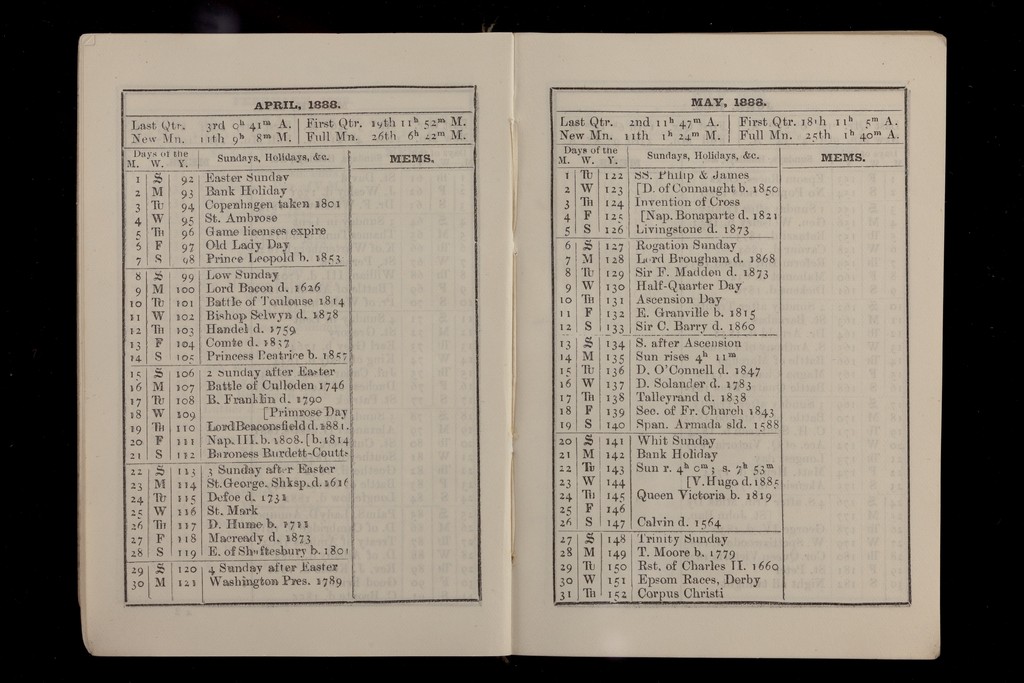 APRIL, 1888.
Last Qtr. 3rd 0h 41m A. First Qtr. 19th 11h 52m M.
New Mn. 11th 9h 8m M. Full Mn. 26th 6h 22m M.
Days of the
M. W. Y. Sundays, Holidays, &c. MEMS.
1 S 92 Easter Sunday
2 M 93 Bank Holiday
3 Tu 94 Copenhagen taken 1801
4 W 95 St. Ambrose
5 Th 96 Game licenses expire
6 F 97 Old Lady Day
7 S 98 Prince Leopold b. 1853
8 S 99 Low Sunday
9 M 100 Lord Bacon d. 1626
10 Tu 101 Battle of Toulouse 1814
11 W 102 Bishop Selwyn d. 1878
12 Th 103 Handel d. 1759
13 F 104 Comte d. 1837
14 S 105 Princess Beatrice b. 1857
15 S 106 2 Sunday after Easter
16 M 107 Battle of Culloden 1746
17 Tu 108 B. Franklin d. 1790
18 W 109 [Primrose Day
19 Th 110 Lord Beaconsfield d. 1881.
20 F 111 Nap. III. b. 1808. [b. 1814
21 S 112 Baroness Burdett-Coutts
22 S 113 3 Sunday after Easter
23 M 114 St. George. Shksp. d. 1616
24 Tu 115 Defoe d. 1731
25 W 116 St. Mark
26 Th 117 D. Hume b. 1711
27 F 118 Macready d. 1873
28 S 119 E. of Shaftesbury b. 1801
29 S 120 4 Sunday after Easter
30 M 121 Washington Pres. 1789
MAY, 1888.
Last Qtr. 2nd 11h 47m A. First Qtr. 18th 11h 5m A.
New Mn. 11th 1h 24m M. Full Mn. 25th 1h 40m A.
Days of the
M. W. Y. Sundays, Holidays, &c. MEMS.
1 Tu 122 SS. Philip & James
2 W 123 [D. of Connaught b. 1850
3 Th 124 Invention of Cross
4 F 125 [Nap. Bonaparte d. 1821
5 S 126 Livingstone d. 1873
6 S 127 Rogation Sunday
7 M 128 Lord Brougham d. 1868
8 Tu 129 Sir F. Madden d. 1873
9 W 130 Half-Quarter Day
10 Th 131 Ascension Day
11 F 132 E. Granville b. 1815
12 S 133 Sir C. Barry d. 1860
13 S 134 S. after Ascension
14 M 135 Sun rises 4h 11m
15 Tu 136 D. O'Connell d. 1847
16 W 137 D. Solander d. 1783
17 Th 138 Talleyrand d. 1838
18 F 139 Sec. of Fr. Church 1843
19 S 140 Span. Armada sld. 1588
20 S 141 Whit Sunday
21 M 142 Bank Holiday
22 Tu 143 Sun r. 4h 0m; s. 7h 53m
23 W 144 [V. Hugo d. 1885
24 Th 145 Queen Victoria b. 1819
25 F 146
26 S 147 Calvin d. 1564
27 S 148 Trinity Sunday
28 M 149 T. Moore b. 1779
29 Tu 150 Rst. of Charles II. 1660
30 W 151 Epsom Races, Derby
31 Th 152 Corpus Christi